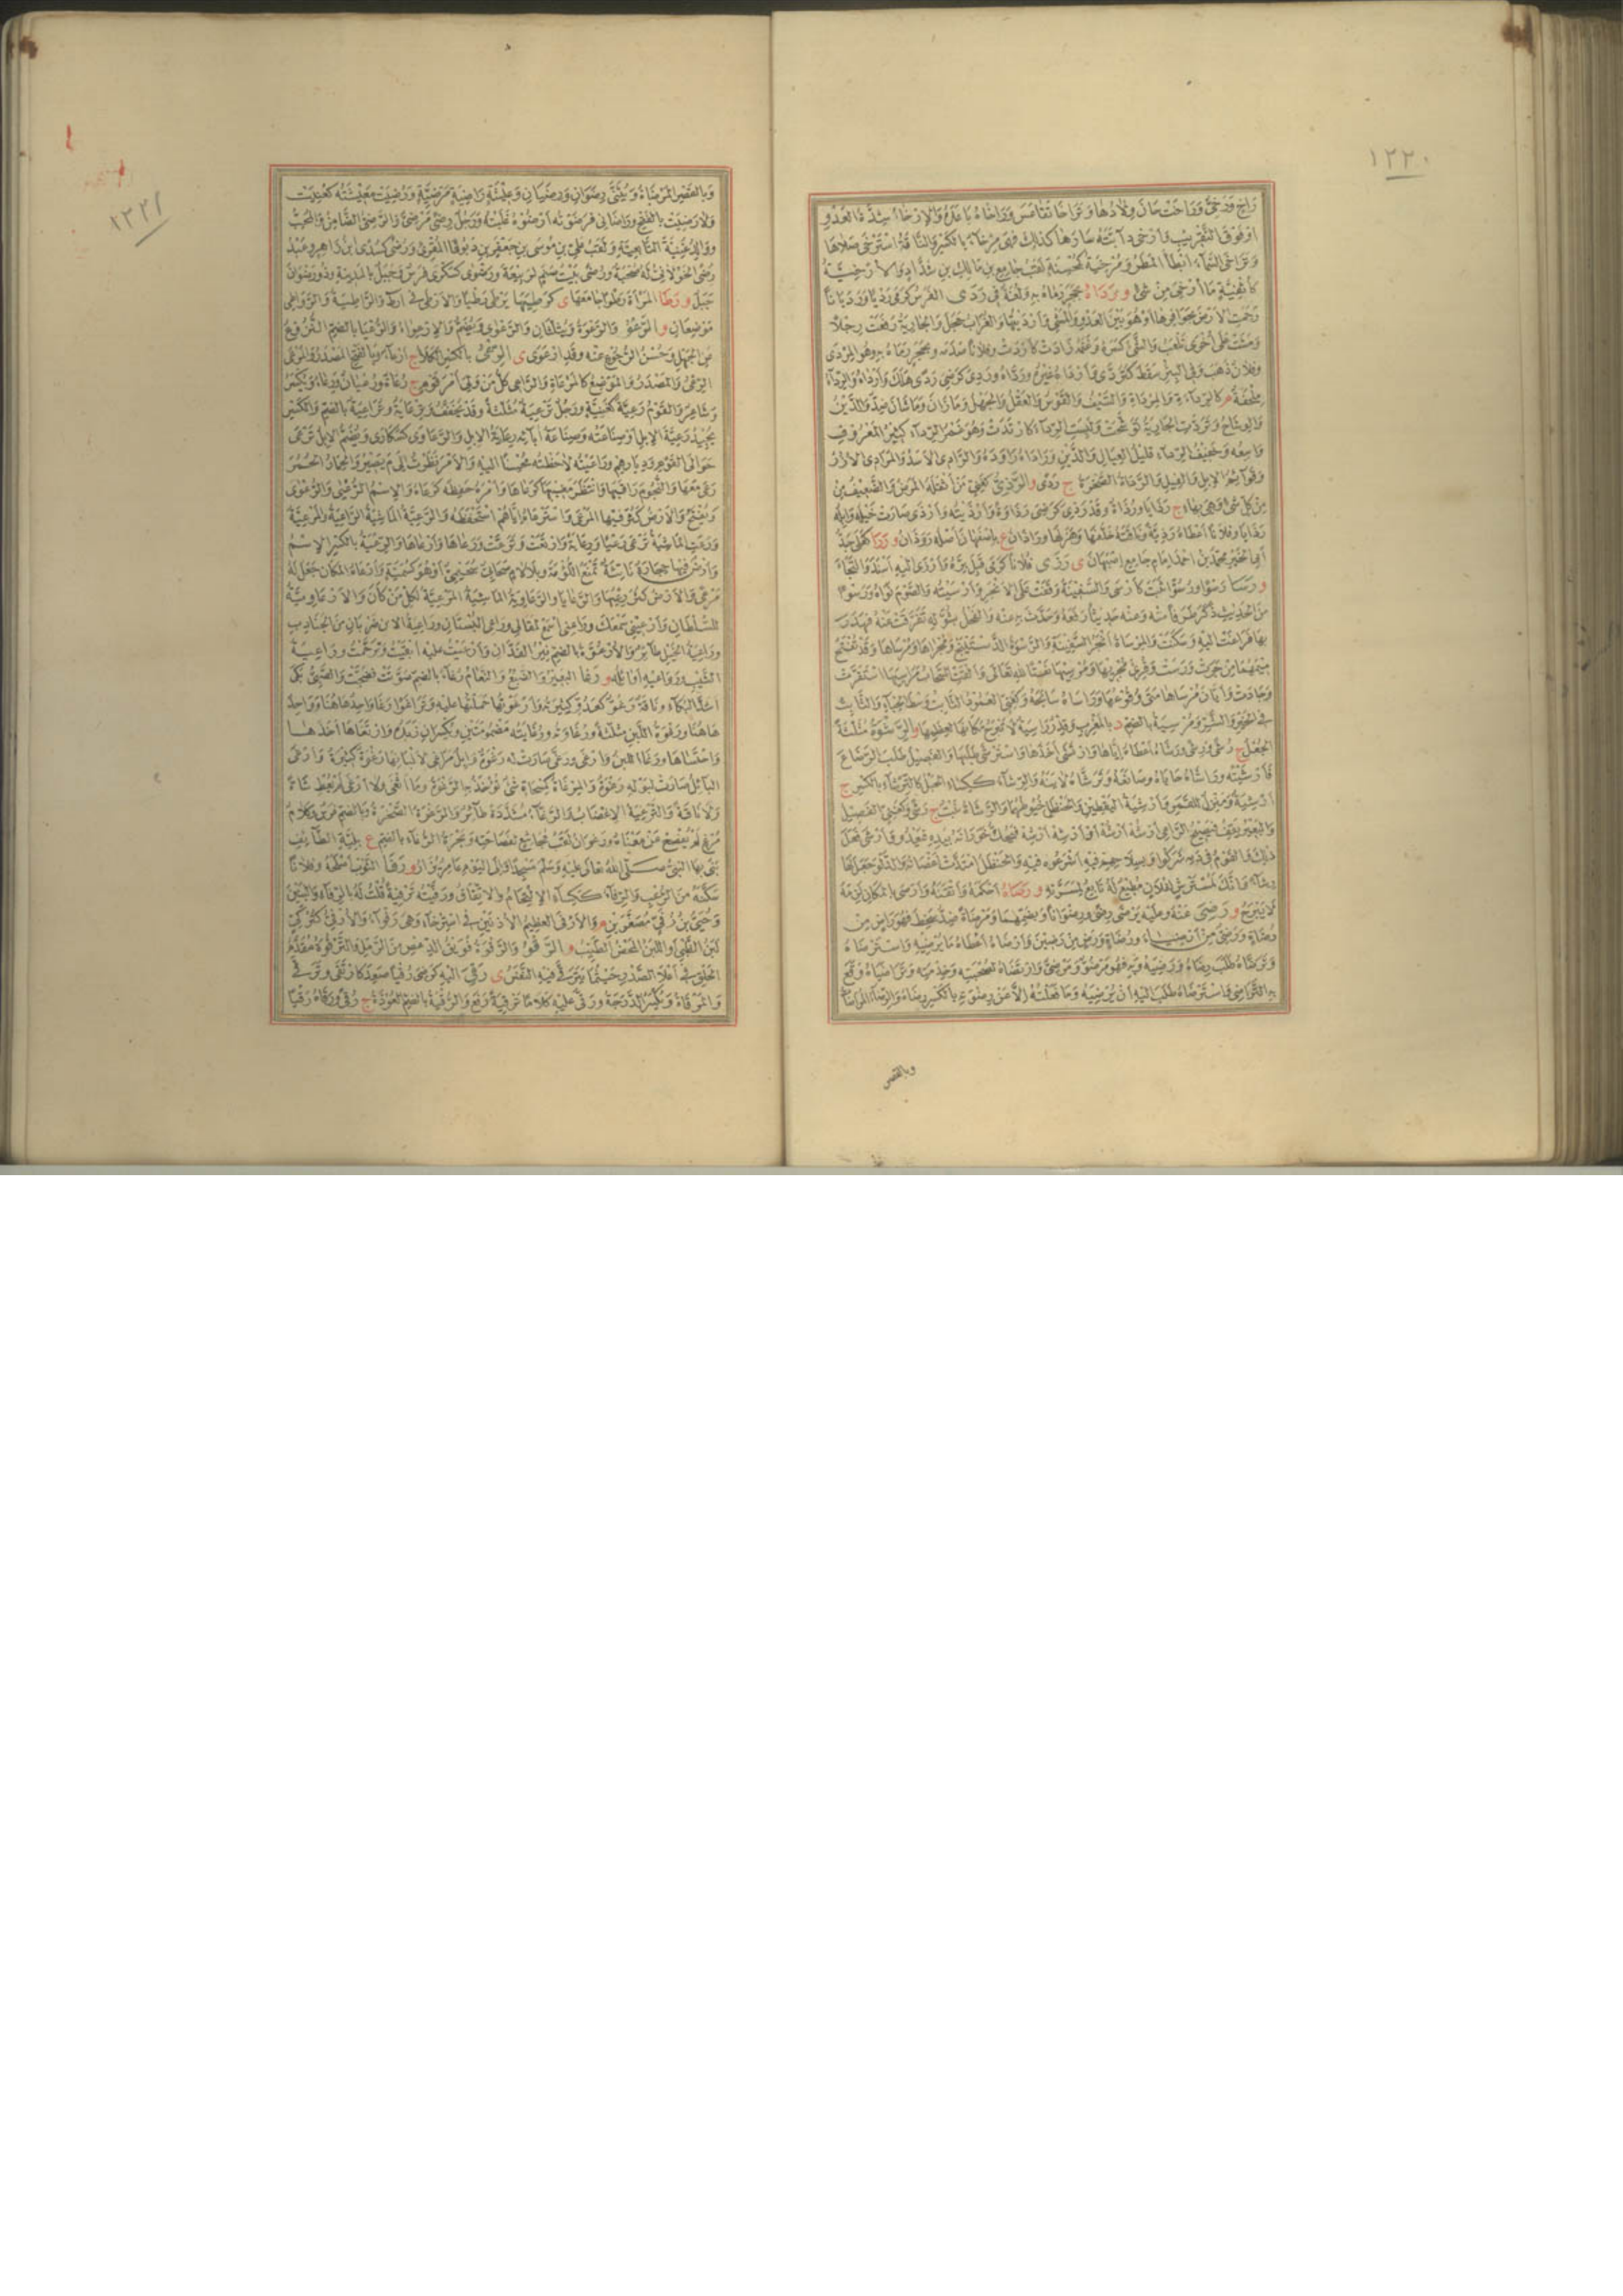 ١٢٢٠
راخ ورخي وراخت حان ولادها وتراخا تقاعس وراخاه باعده والارخاء شدة العدو
او فوق التقريب وارخى دابته سارها كذلك فهي مرخاء بالكسر والناقة استرخى صلاها
وتراخى السماء ابطأ المطر ومرخية كمحسنة لقب جامع بن مالك بن شداد والارخية
كاثفية ما ارخي من شئ و رداه بحجر رماه به ولغة في ردى الفرس كرمى رديا ورديانا
رجمت الارض بحوافرها او هو بين العدو والمشي وارديتها والغراب حجل والجارية رفعت رجلا
ومشت على اخرى تلعب والشئ كسره وغنمه زادت كاردت وفلانا صدمه وبحجر رماه به وهو المردى
وفلان ذهب وفي البئر سقط كتردى وارداه غيره ورداه وردي كرضي ردى هلك وارداه والرداء
ملحفة م كالرداءة والمرداة والسيف والقوس والعقل والجهل وما زان وما شان ضد والدين
والوشاح وتردت الجارية توشحت ولبست الرداء كارتدت وهو غمر الرداء كثير المعروف
واسعه وخفيف الرداء قليل العيال والدين وراداه راوده والرادي الاسد والمرادي الازر
وقوائم الابل والفيل والرداة الصخرة ج ردى و الرذي كغني من اثقله المرض والضعيف من
من كل شئ وهي بهاء ج رذايا ورذاة وقد رذي كرضي رذاوة وارذيته وارذى صارت خيله وابله
رذايا وفلانا اعطاه رذية وناقته خلفها وهزلها وراذان ع باصفهان اصله روذان و رزا كعلى جد
ابي الخير محمد بن احمد امام جامع اصبهان ى رزى فلانا كرمى قبل بره وارزى اليه استند والتجأ
و رسا رسوا ورسوا ثبت كارسى والسفينة وقفت على الانجر وارسيته والصوم نواه ورسوا
من الحديث ذكر طرفا منه وعنه حديثا رفعه وحدث به عنه والفحل بشوله تفرقت عنه فهدر
بها فراغت اليه وسكنت والمرساة انجر السفينة والرسوة الدستينج ومجراها ومرساها وقد تفتح
ميمهما من جرت ورست وقرئ مجريها ومرسيها نعتا لله تعالى والقت السحاب مراسيها استقرت
وجادت وايان مرساها متى وقوعها وراساه سابحه وكغني العمود الثابت وسط الخباء والثابت
في الخير والشر ومرسية بالضم د بالمغرب وقدر راسية لا تبرح مكانها لعظمها و الرشوة مثلثة
الجعل ج رشى ورشى ورشاه اعطاه اياها وارتشى اخذها واسترشى طلبها والفصيل طلب الرضاع
فارشيته وراشاه حاباه وصانعه وترشاه لاينه والرشاء ككساء الحبل كالترشاء بالكسر ج
ارشية ومنزل للقمر وارشية اليقطين والحنظل خيوطهما والرشاة نبت ج رشى وكغني الفصيل
والبعير يقف فيصيح الراعي ارشه ارشه او ارشه ارشه فيحك خورانه بيده فيعدو وارشى فعل
ذلك والقوم في دمه شركوا وبسلاحهم فيه اشرعوه فيه والحنظل امتدت اغصانه والدلو جعل لها
رشاء وانك لمسترش لفلان مطيع له تابع لمسرته و رصاه احكمه واتقنه وارصى بالمكان لزمه
لا يبرح و رضي عنه وعليه يرضى رضى ورضوانا ويضمهما ومرضاة ضد سخط فهو راض من
رضاة ورضي من ارضياء ورضاة ورض من رضين وارضاه اعطاه ما يرضيه واسترضاه
وترضاه طلب رضاه ورضيته وبه فهو مرضو ومرضي وارتضاه لصحبته وخدمته وتراضياه وقع
به التراضي واسترضاه طلب اليه ان يرضيه وما فعلته الا عن رضوته بالكسر رضاه والرضاء المراضاة
وبالقصر
١٢٢١
وبالقصر المرضاة ويثنى رضوان ورضيان وعيشة راضية مرضية ورضيت معيشته كعنيت
ولا رضيت بالفتح وراضاني فرضوته ارضوه غلبته ورجل رضى مرضي والرضي الضامن والمحب
ووالد غنية التابعية ولقب علي بن موسى بن جعفر بن دبوقا المقرئ ورضى كسدى ابن زاهر وعبد
رضى الخولاني له صحبة ورضى بيت صنم لربيعة ورضوى كسكرى فرس وجبل بالمدينة وذو رضوان
جبل و رطا المرأة رطوا جامعها ى كرطيها يرطى رطيا والارطى في ارط والراطية والرواطي
موضعان و الرعو والرعوة ويثلثان والرعوى ويضم والارعواء والرعيا بالضم النزوع
عن الجهل وحسن الرجوع عنه وقد ارعوى ى الرعي بالكسر الكلا ج ارعاء وبالفتح المصدر والمرعى
الرعي والمصدر والموضع كالمرعاة والراعي كل من ولي امر قوم ج رعاة ورعيان ورعاء ويكسر
وشاعر والقوم رعية كغنية ورجل ترعية مثلثة وقد يخفف وترعاية وتراعية بالضم والكسر
يجيد رعية الابل او صناعته وصناعة آبائه رعاية الابل والرعاوى كسكارى ويضم الابل ترعى
حوالي القوم وديارهم وراعيته لاحظته محسنا اليه والامر نظرت الى م يصير والحمار الحمر
رعى معها والنجوم راقبها وانتظر مغيبها كرعاها وامره حفظه كرعاه والاسم الرعيى والرعوى
ويفتح والارض كثر فيها المرعى واسترعاه اياهم استحفظه والرعية الماشية الراعية والمرعية
ورعت الماشية ترعى رعيا ورعاية وارتعت وترعت ورعاها وارعاها والرعية بالكسر الاسم
وارض فيها حجارة ناتئة تمنع اللؤمة وبلا لام صحابي سحيمي او هو كسمية وارعاه المكان جعل له
مرعى والارض كثر رعيها والرعايا والرعاوية الماشية المرعية لكل من كان والارعاوية
للسلطان وارعني سمعك وراعني استمع لمقالي وراعي البستان وراعية الاتن ضربان من الجنادب
وراعية الخيل طائر والارعوة بالضم نير الفدان وارعيت عليه ابقيت وترحمت وراعية
الشيب ورواعيه اوائله و رغا البعير والضبع والنعام رغاء بالضم صوتت فضجت والصبي بكى
اشد البكاء وناقة رغو كعدو كثيرته وارغوتها حملتها عليه وتراغوا رغا واحد هاهنا وواحد
هاهنا ورغوة اللبن مثلثة ورغاوته ورغايته مضمومتين ويكسران زبده وارتغاها اخذها
واحتساها ورغا اللبن وارغى ورغى صارت له رغوة وابل مراغي لالبانها رغوة كثيرة وارغى
البائل صارت لبوله رغوة والمرغاة كمسحاة شئ تؤخذ به الرغوة وما اثغى ولا ارغى لم يعط شاة
ولا ناقة والترغية الاغضاب والرغاء مشددة طائر والرغوة الصخرة وبالضم فرس وكلام
مرغ لم يفصح عن معناه ورغوان لقب مجاشع لفصاحته وبحرة الرغاء بالضم ع بلية الطائف
بنى بها النبي صلى الله تعالى عليه وسلم مسجدا والى اليوم عامر يزار و رفا الثوب اصلحه وفلانا
سكنه من الرعب والرفاء ككساء الالتحام والاتفاق ورفيته ترفية قلت له بالرفاء والبنين
وحيي بن رفي مصغرين م والارفى العظيم الاذنين في استرخاء وهي رفواء والارفي كتركي
لبن الظبي او اللبن المحض الطيب و الرقو والرقوة فويق الدعص من الرمل والترقوة مقدم
الحلق في اعلا الصدر حيثما يترقى فيه النفس ى رقي اليه كرضي رقيا صعد كارتقى وترقى
والمرقاة ويكسر الدرجة ورقى عليه كلاما ترقية رفع والرقية بالضم العوذة ج رقى ورقاه رقيا